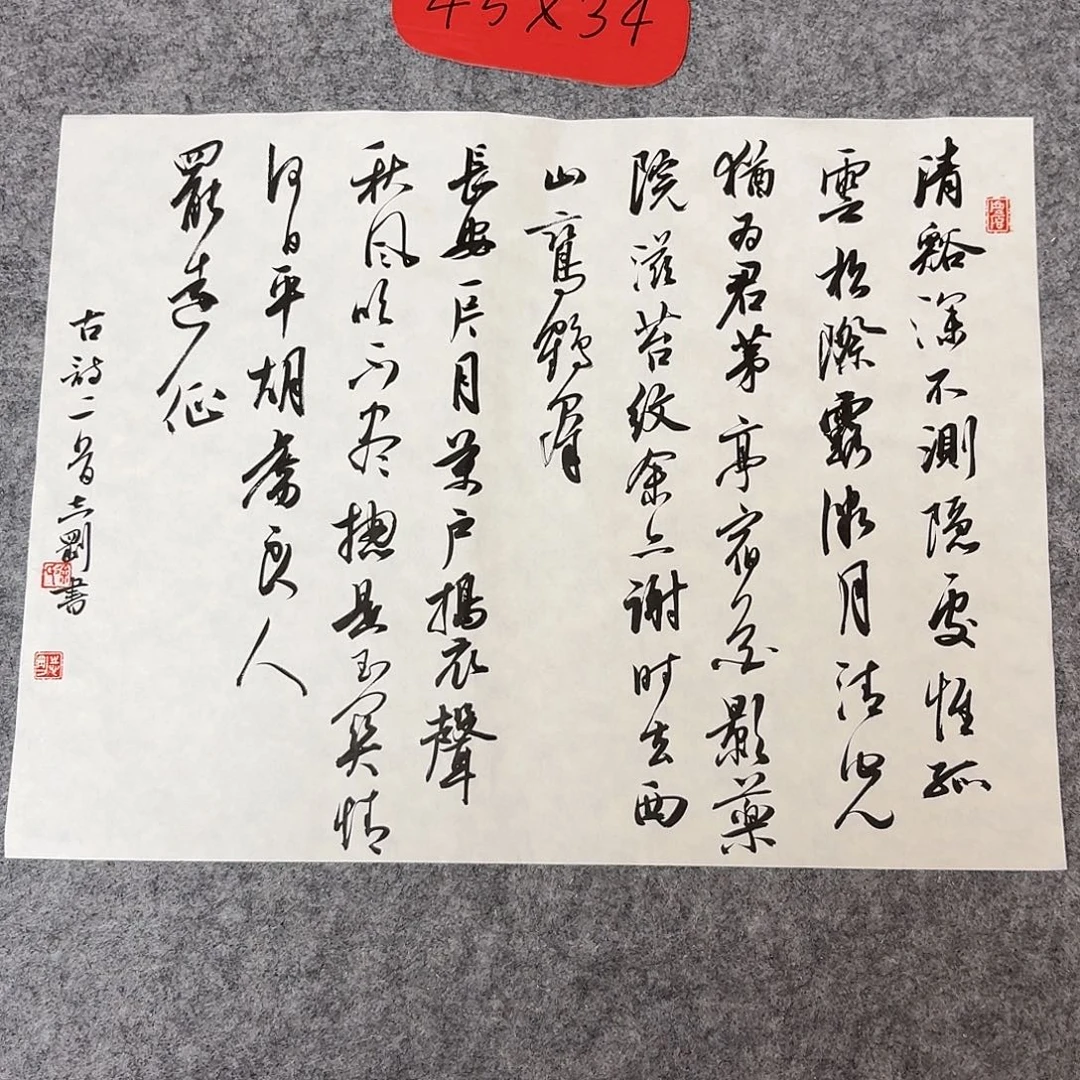 45×34
清谿深不測隱處惟孤
雲松際露微月清光
猶为君茅亭宿花影藥
院滋苔紋余亦謝时去西
山鸞鶴羣
長安一片月萬户搗衣聲
秋風吹不盡揔是玉關情
何日平胡虜良人
罷遠征
古詩二首書